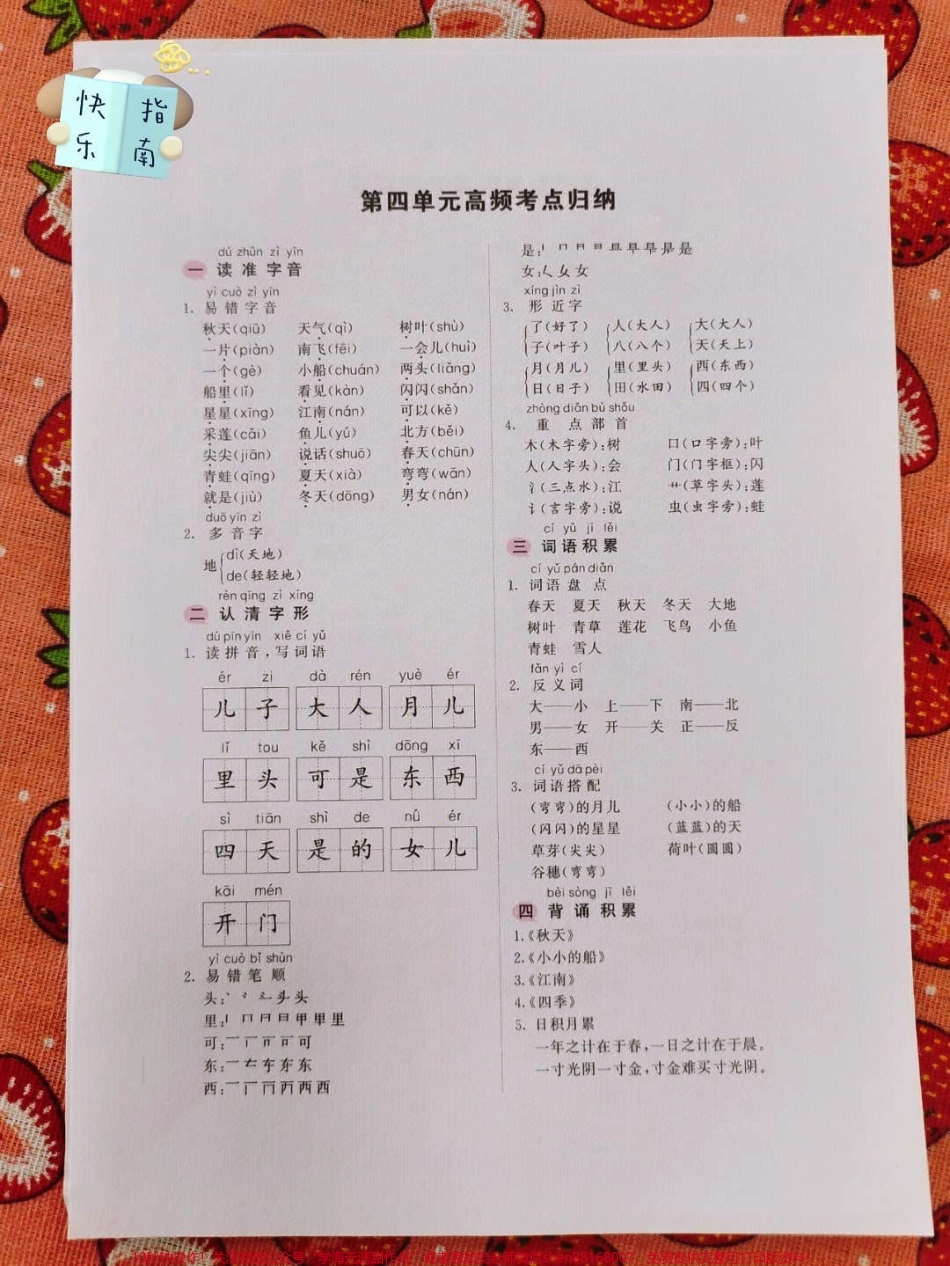 快 指
乐 南
第四单元高频考点归纳
dú zhǔn zì yīn
一 读准字音
yì cuò zì yīn
1. 易错字音
秋天(qiū) 天气(qì) 树叶(shù)
一片(piàn) 南飞(fēi) 一会儿(huì)
一个(gè) 小船(chuán) 两头(liǎng)
船里(lǐ) 看见(kàn) 闪闪(shǎn)
星星(xīng) 江南(nán) 可以(kě)
采莲(cǎi) 鱼儿(yú) 北方(běi)
尖尖(jiān) 说话(shuō) 春天(chūn)
青蛙(qīng) 夏天(xià) 弯弯(wān)
就是(jiù) 冬天(dōng) 男女(nán)
duō yīn zì
2. 多音字
地 dì(天地)
de(轻轻地)
rèn qīng zì xíng
二 认清字形
dú pīn yīn xiě cí yǔ
1. 读拼音,写词语
ér zi dà rén yuè ér
儿子 大人 月儿
lǐ tou kě shì dōng xī
里头 可是 东西
sì tiān shì de nǚ ér
四天 是的 女儿
kāi mén
开门
yì cuò bǐ shùn
2. 易错笔顺
头:
里:
可:
东:
西:
是:
女:
xíng jìn zì
3. 形近字
了(好了) 人(大人) 大(大人)
子(叶子) 八(八个) 天(天上)
月(月儿) 里(里头) 西(东西)
日(日子) 田(水田) 四(四个)
zhòng diǎn bù shǒu
4. 重点部首
木(木字旁):树 口(口字旁):叶
人(人字头):会 门(门字框):闪
氵(三点水):江 艹(草字头):莲
讠(言字旁):说 虫(虫字旁):蛙
cí yǔ jī lěi
三 词语积累
cí yǔ pán diǎn
1. 词语盘点
春天 夏天 秋天 冬天 大地
树叶 青草 莲花 飞鸟 小鱼
青蛙 雪人
fǎn yì cí
2. 反义词
大——小 上——下 南——北
男——女 开——关 正——反
东——西
cí yǔ dā pèi
3. 词语搭配
(弯弯)的月儿 (小小)的船
(闪闪)的星星 (蓝蓝)的天
草芽(尖尖) 荷叶(圆圆)
谷穗(弯弯)
bèi sòng jī lěi
四 背诵积累
1.《秋天》
2.《小小的船》
3.《江南》
4.《四季》
5. 日积月累
一年之计在于春,一日之计在于晨。
一寸光阴一寸金,寸金难买寸光阴。